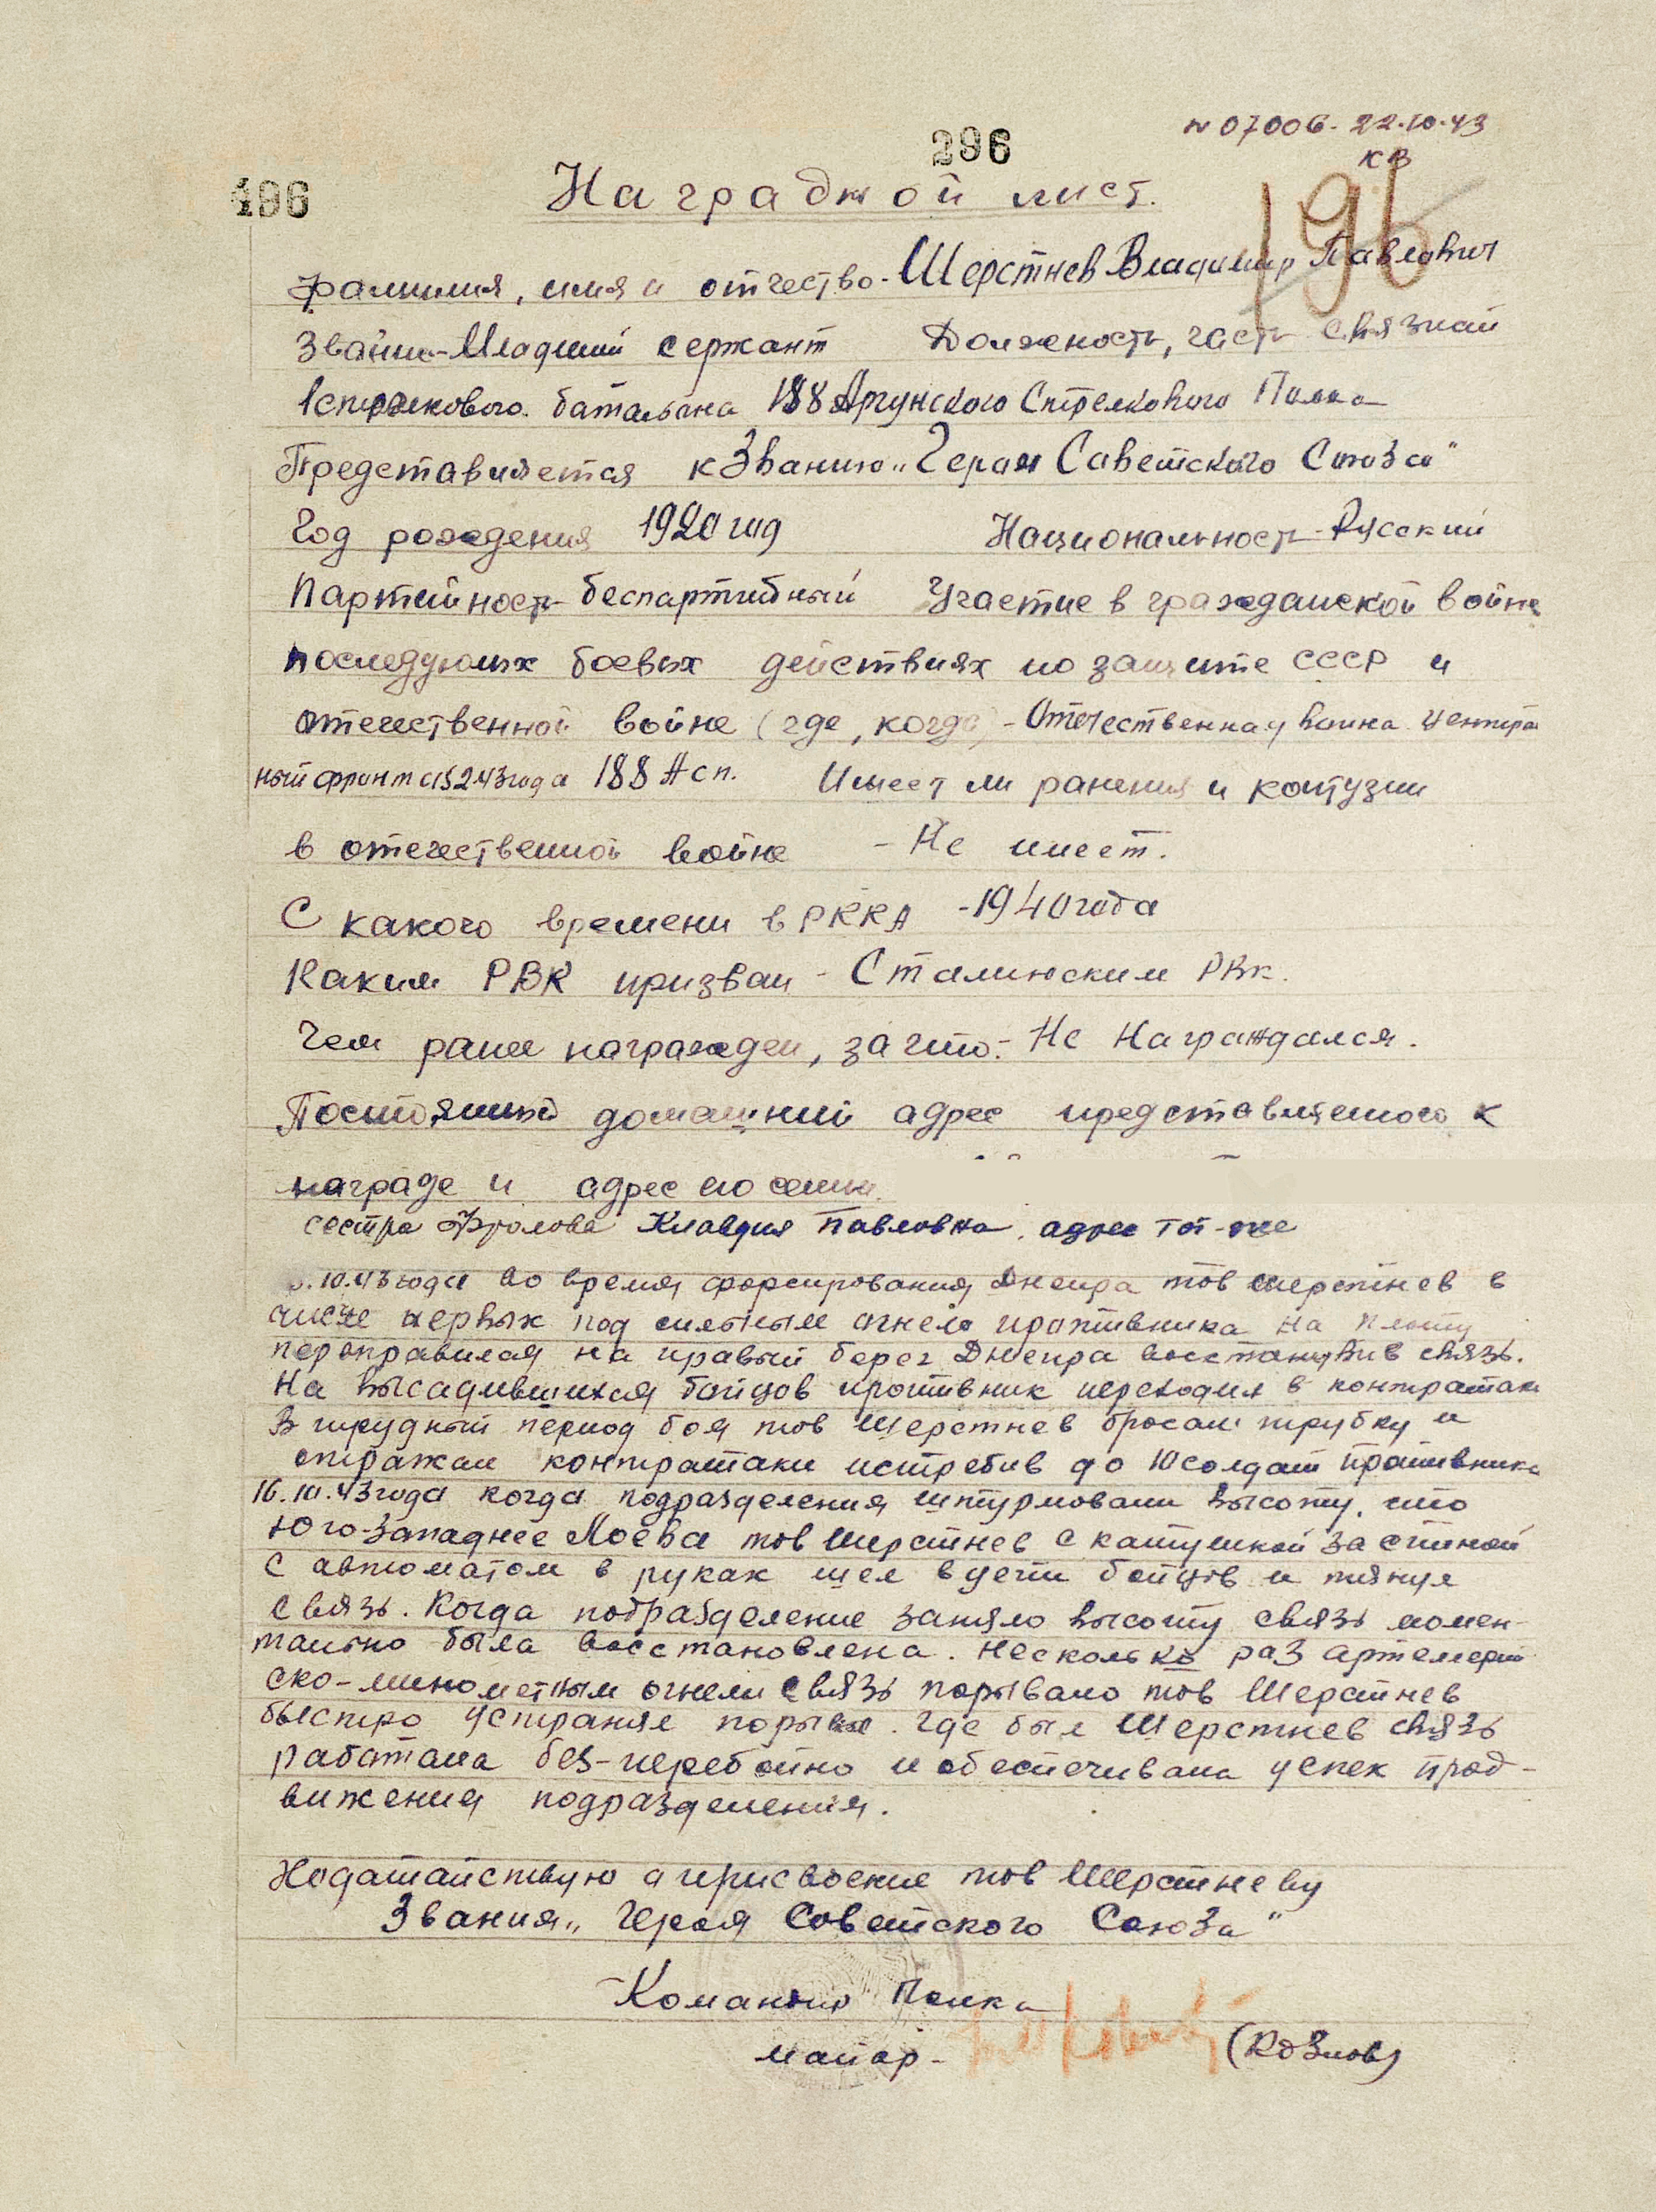 N 07006. 22.10.43
КВ
296
196
196
Наградной лист.
фамилия, имя и отчество - Шерстнев Владимир Павлович
Звание - Младший сержант Должность, часть Связной
1 стрелкового батальона 188 Аргунского Стрелкового Полка
Представляется к Званию „Героя Советского Союза"
Год рождения 1920 год Национальность - Русский
Партийность - беспартийный Участие в гражданской войне
последующих боевых действиях по защите СССР и
отечественной войне (где, когда) - Отечественная война Централ
ный фронт с 15 2 43 года 188 Асп. Имеет ли ранения и контузии
в отечественной войне - Не имеет.
С какого времени в РККА - 1940 года
Каким РВК призван - Сталинским РВк.
Чем ранее награжден, за что: - Не Награждался.
Постоянный домашний адрес представляемого к
награде и адрес его семьи.
сестра Фролова Клавдия Павловна. адрес тот-же
.10.43 года во время форсирования Днепра тов Шерстнев в
числе первых под сильным огнем противника на плоту
переправился на правый берег Днепра восстановив связь.
На высадившихся бойцов противник переходил в контратаки
В трудный период боя тов Шерстнев бросал трубку и
отражал контратаки истребив до 10 солдат противника
16.10.43 года когда подразделения штурмовали высоту, что
Юго-западнее Лоева тов Шерстнев с катушкой за спиной
с автоматом в руках шел в цепи бойцов и тянул
связь. Когда подразделение заняло высоту связь момен-
тально была восстановлена. Несколько раз артелерий
ско-минометным огнем связь порывало тов Шерстнев
быстро устранял порывы. Где был Шерстнев связь
работала без-перебойно и обеспечивала успех прод-
вижения подразделения.
Ходатайствую о присвоение тов Шерстневу
Звания „Героя Советского Союза"
Командир Полка
майор - (Козлов)